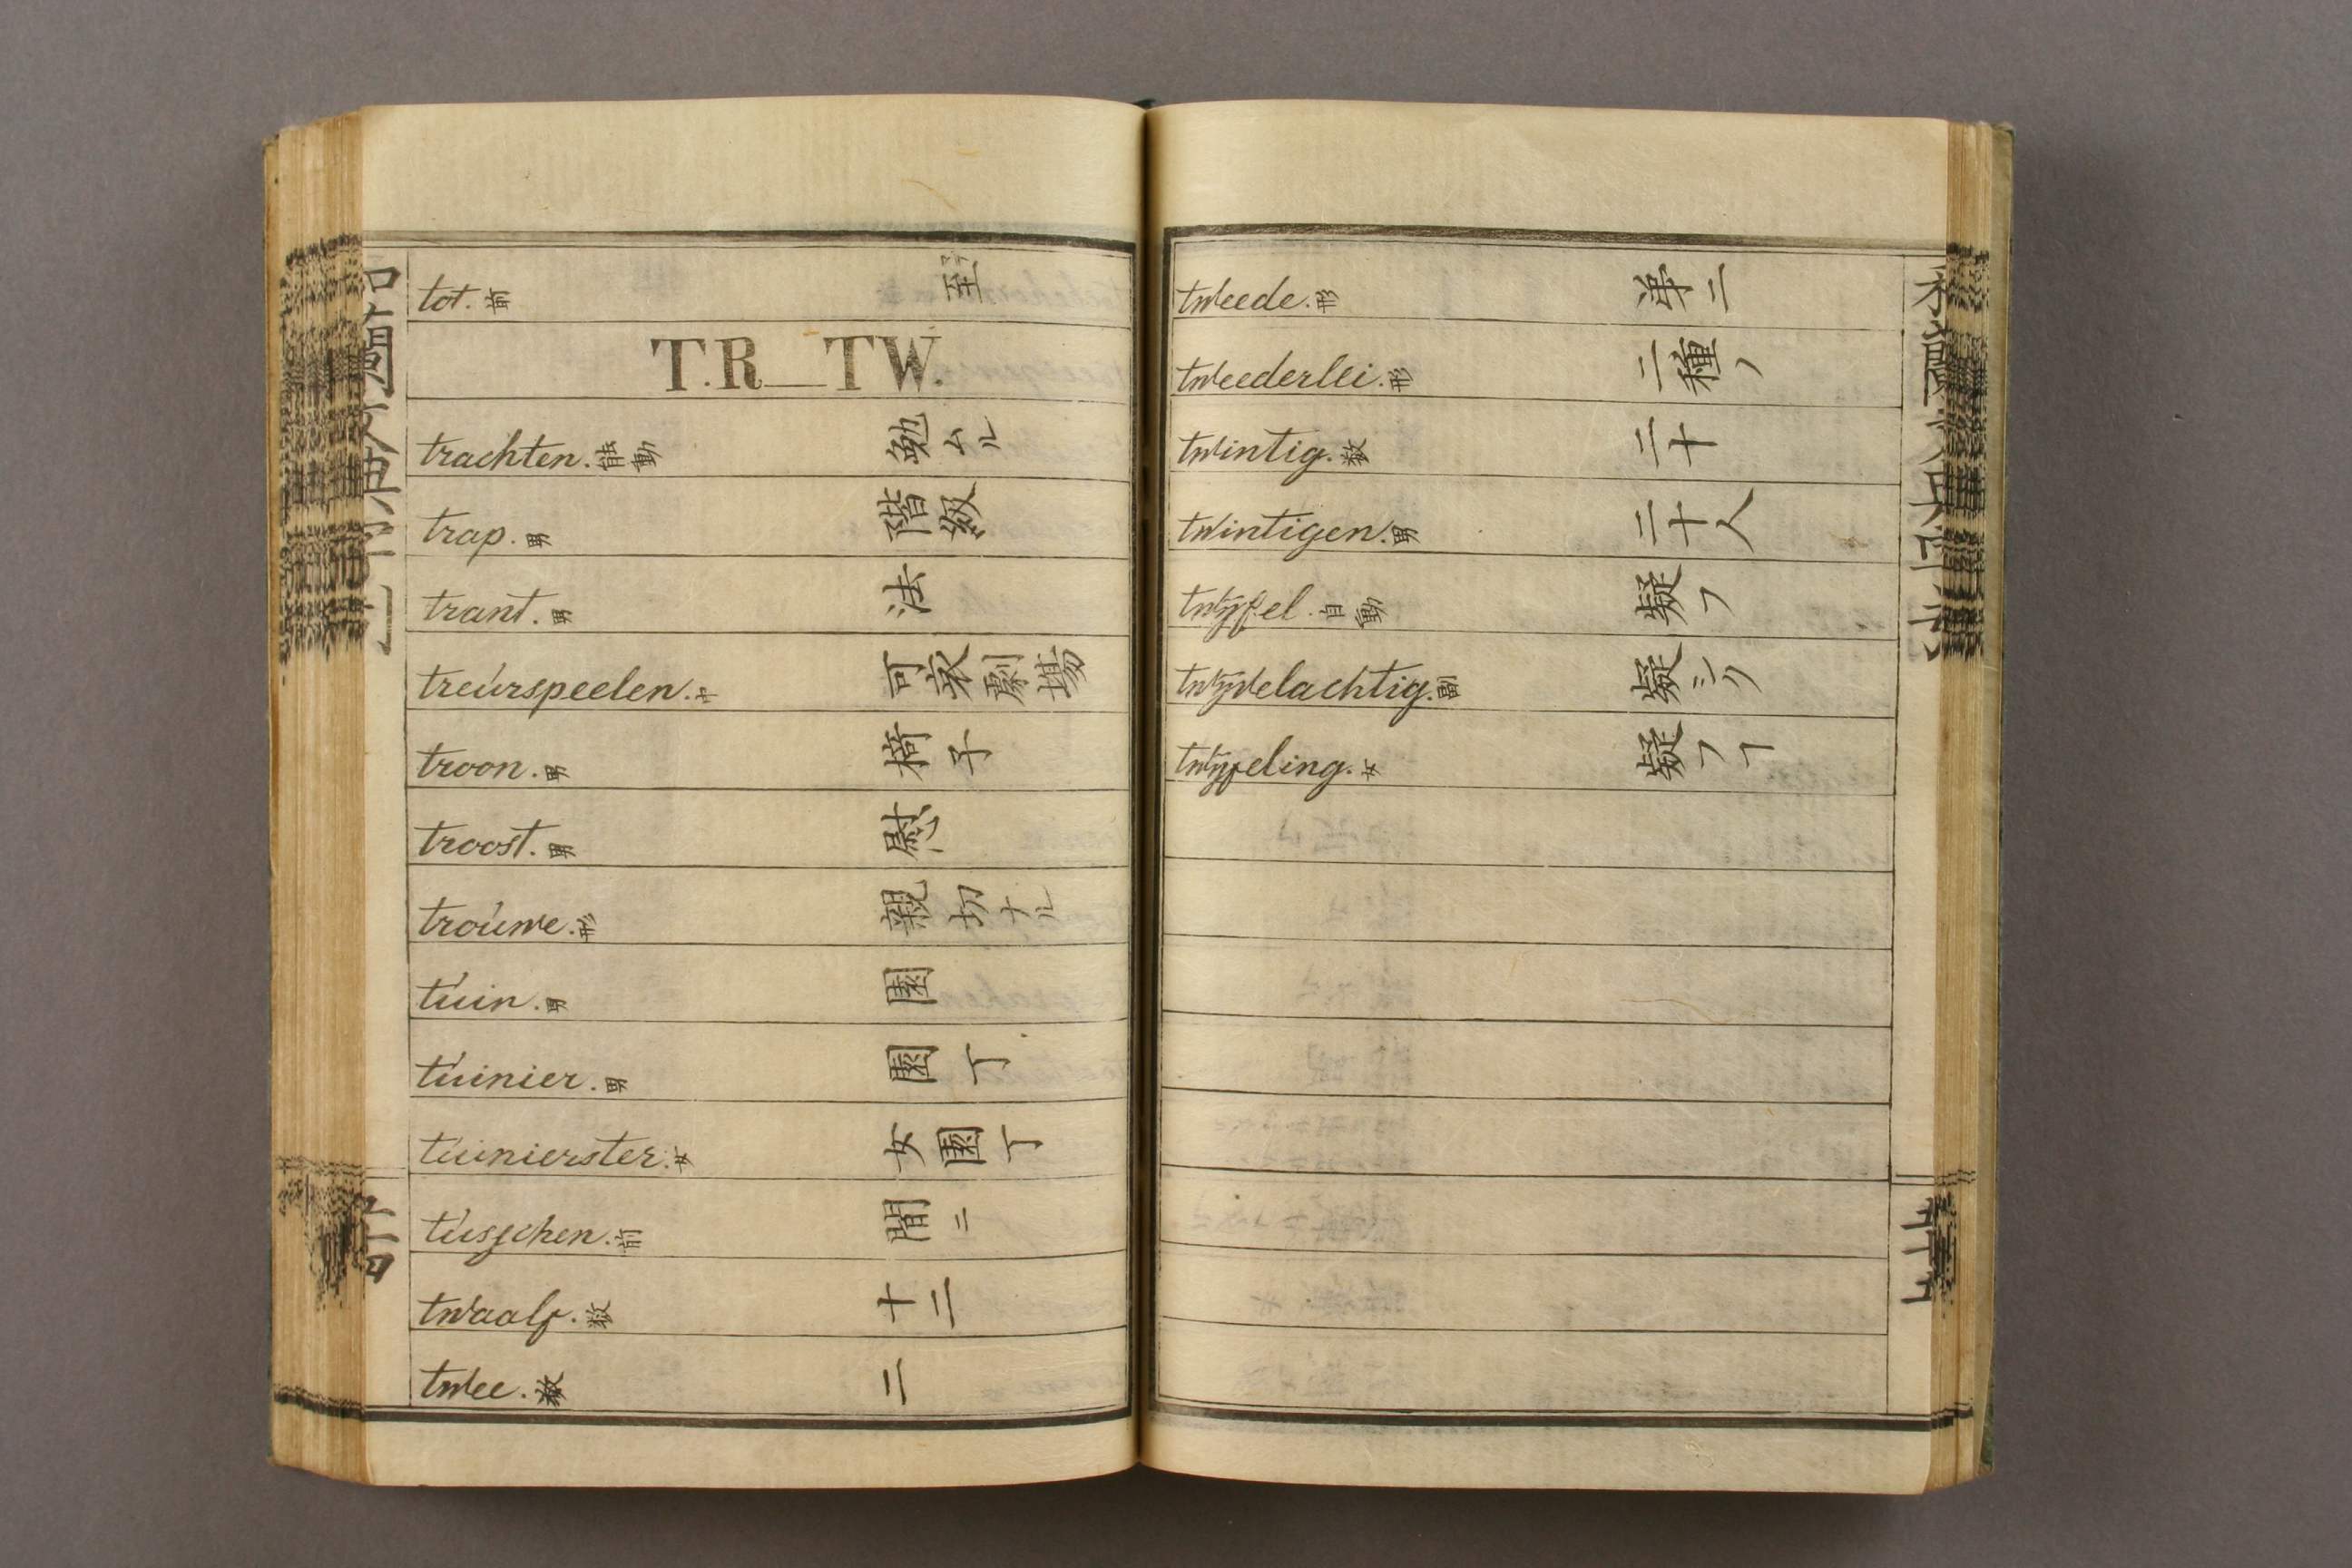 tot. 前 至
T.R_TW.
trachten. 能動 勉ムル
trap. 男 階級
trant. 男 法
treúrspeelen. 中 可哀劇場
troon. 男 椅子
troost. 男 慰
troúwe. 形 親切ナル
túin. 男 園
túinier. 男 園丁
túinierster. 女 女園丁
tússchen. 前 間ニ
twaalf. 数 十二
twee. 数 二
tweede. 形 第二
tweederlei. 形 二種ノ
twintig. 数 二十
twintigen. 男 二十人
twÿfel. 自動 擬フ
twÿvelachtig. 副 擬シク
twÿfeling. 女 擬フヿ